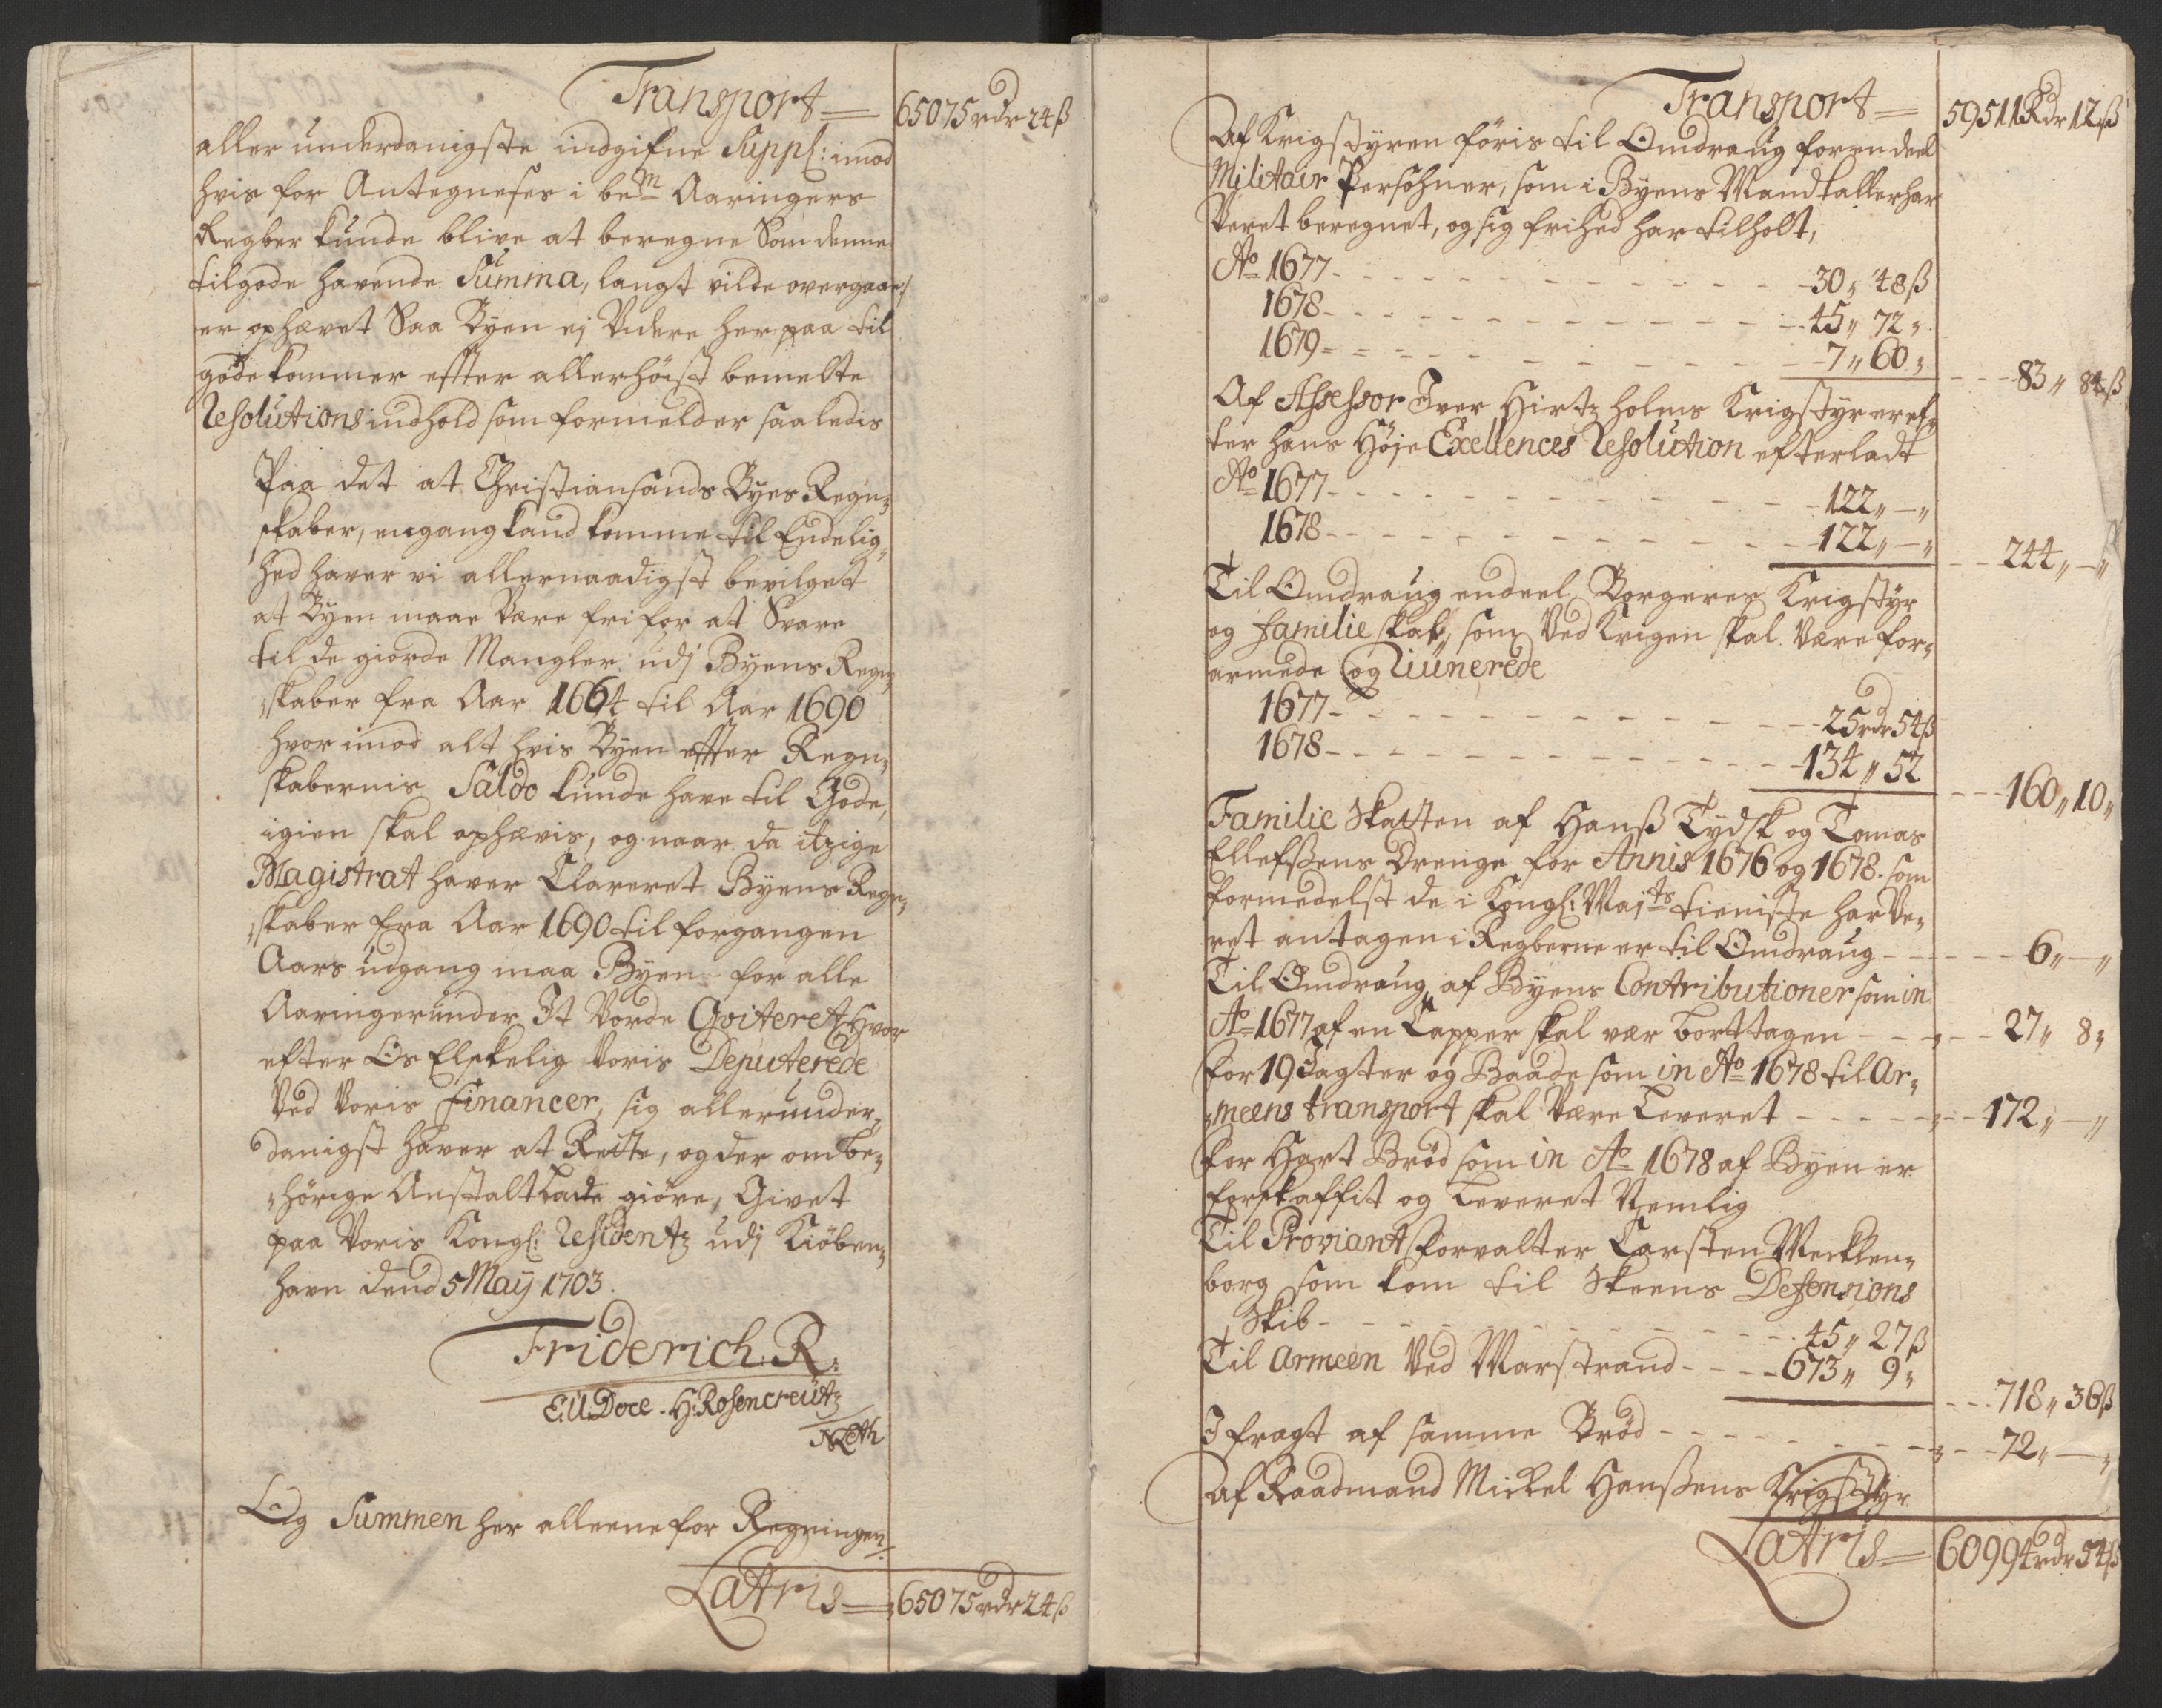 Transport= 65075rdr 24ß
aller underdanigste indgifne Suppl: imod
hvis for Antegneses i bem Aaringers
Regber kunde blive at beregne Som denne
tilgode havende Summa, langt vilde overgaae/
er ophævet Saa Byen ej Videre her paa til
gode kommer effter allerhöist bemelte
Resolutions indhold som formelder saaledis
Paa det at Christiansands Byes Regn„
„skaber, engang kand komme til Endelig„
hed haver vi allernaadigst bevilget
at Byen maae være fri for at Svare
til de giorde Mangler udj Byens Regn„
„skaber fra Aar 1664 til Aar 1690
hvor imod alt hvis Byen effter Regn„
skabernis Saldo kunde have til Gode,
igien skal ophævis, og naar da itzige
Magistrat haver Clareret Byens Regn„
„skaber fra Aar 1690 til forgangen
Aars udgang maa Byen for alle
Aaringer under It Vorde Qviteret Hvor
efter Os Elskelig Voris Deputerede
Ved Voris Financer, sig allerunder„
danigst haver at Rette, og der om be„
„hörige Anstalt Lade giöre, Givet
paa Voris Kongl: Residentz udj Kiöben„
havn dend 5 Maÿ 1703.
Friderich. R:
E: U: Dose. H: Rosencreutz
Og Summen her alleene for Regningen/:
Lattris= 65075rdr 24ß
Transport= 59511Rdr 12ß
Af Krigstyren föris til Omdraug for en deel
Militair Persohner, som i Byens Mandtaller har
Veret beregnet, og sig frihed har tilholt,
Ao 1677 - - - 30„ 48ß
1678 - - - 45„ 72„
1679 - - - 7„ 60„ - - - 83„ 84ß
Af Assessor Iver Hirtzholms Krigstyr er ef„
ter hans Höje Exellences Resolution efterladt
Ao 1677 - - - 122„ —„
1678 - - - 122„ —„ - - - 244„ —„
Til Omdraug endeel Borgeres Krigstyr
og familie skat, som Ved Krigen skal Være for„
armede og Riunerede
1677 - - - 25rdr 54ß
1678 - - - 134„ 52 - - - 160„ 10„
Familie Skatten af Hanß Tydsk og Tomas
Ellefßens Drenge for Annis 1676 og 1678. som
formedelst de i Kongl: Maj:ts tieniste har Ve„
ret antagen i Regberne er til Omdraug - - - 6„ —„
Til Omdraug af Byens Contributioner som in
Ao 1677 af en Capper skal vær borttagen - - - 27„ 8„
For 19 Jagter og Baade som in Ao 1678 til Ar„
„meens transport skal Være Leveret - - - 172„ —„
for Hart Bröd som in Ao 1678 af Byen er
forskaffit og Leveret Nemlig
Til Proviant Forvalter Carsten Mecklen„
borg som kom til Skeens Defensions
Skib - - - 45„ 27ß
Til Armeen Ved Marstrand - - - 673„ 9„ - - - 718„ 36ß
I fragt af samme Bröd - - - 72„ —„
Af Raadmand Mickel Hanßens Krigstyr
Lattris= 60994rdr 54ß